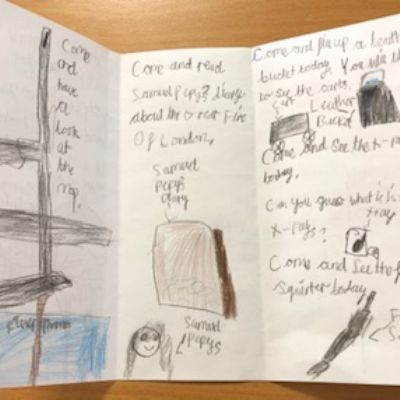 Come
and
have
a
look
at
the
map,
Come and read
Samuel Pepys? diary
about the Great Fire
Of London,
Samuel
Pepys
diary
Samuel
Pepys
Come and pick up a leather
bucket today. You will
to see the carts,
Cart
Leather
Bucket
Come and see the x-rays
today,
Can you guess what is in
x-rays?
xray
Come and see the
squirter today